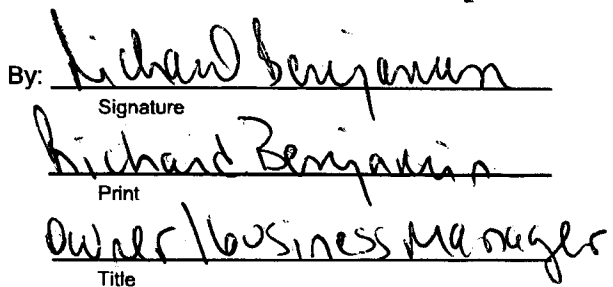 By: Richard Benjamin
Signature
Richard Benjamin
Print
owner/business Manager
Title